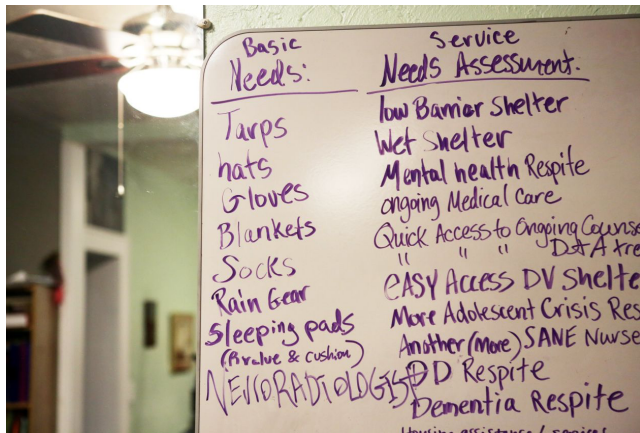 Basic
Needs:
Tarps
hats
Gloves
Blankets
Socks
Rain Gear
Sleeping pads
(R value & cushion)
Service
Needs Assessment.
low Barrier Shelter
Wet Shelter
Mental health Respite
ongoing Medical Care
Quick Access to Ongoing Counse
" " " D+A tre
eASY Access DV Shelte
More Adolescent Crisis Res
Another (More) SANE Nurse
DD Respite
Dementia Respite